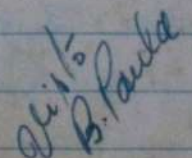 Visto
B. Paula